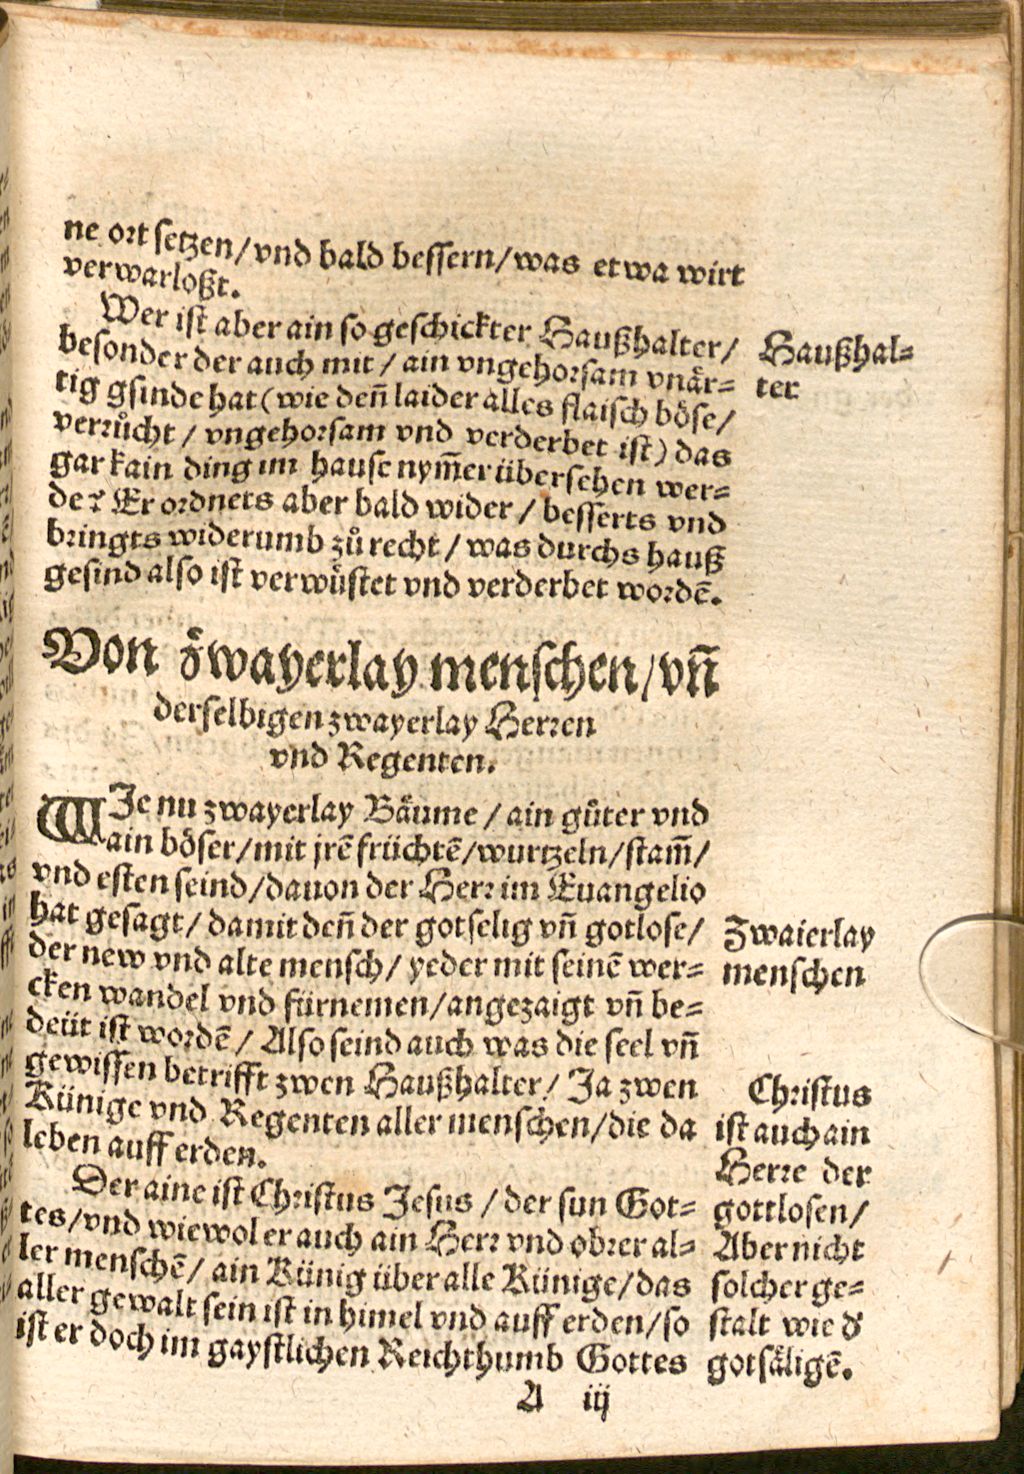 ne ort setzen/vnd bald bessern/was etwa wirt
verwarloßt.
Wer ist aber ain so geschickter Haußhalter/
besonder der auch mit/ ain vngehorsam vnår-
tig gsinde hat (wie deñ laider alles flaisch böse/
verrůcht/ vngehorsam vnd verderbet ist) das
gar kain ding im hause nym̃er übersehen wer-
de? Er ordnets aber bald wider/ besserts vnd
bringts widerumb zů recht/ was durchs hauß
gesind also ist verwüstet vnd verderbet wordẽ.
Haußhal-
ter
Von zwayerlay menschen/vñ
derselbigen zwayerlay Herren
vnd Regenten.
WJe nu zwayerlay Bäume/ ain gůter vnd
ain böser/mit jrẽ früchtẽ/wurtzeln/stam̃/
vnd esten seind/dauon der Herr im Euangelio
hat gesagt/ damit deñ der gotselig vñ gotlose/
der new vnd alte mensch/ yeder mit seinẽ wer-
cken wandel vnd fürnemen/angezaigt vñ be-
deüt ist wordẽ/ Also seind auch was die seel vñ
gewissen betrifft zwen Haußhalter/ Ja zwen
Künige vnd Regenten aller menschen/die da
leben auff erden.
Zwaierlay
menschen
Der aine ist Christus Jesus/ der sun Got-
tes/vnd wiewol er auch ain Herr vnd obrer al-
ler menschẽ/ ain Künig über alle Künige/das
aller gewalt sein ist in himel vnd auff erden/so
ist er doch im gaystlichen Reichthumb Gottes
Christus
ist auch ain
Herre der
gottlosen/
Aber nicht
solcher ge-
stalt wie d'
gotsäligẽ.
A iij